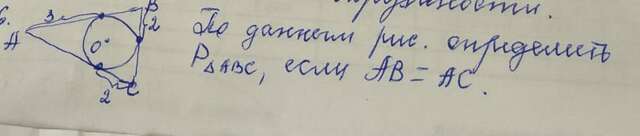 6.
A 3 B 2
O
2 C
По данным рис. определить
P△ABC, если AB = AC.